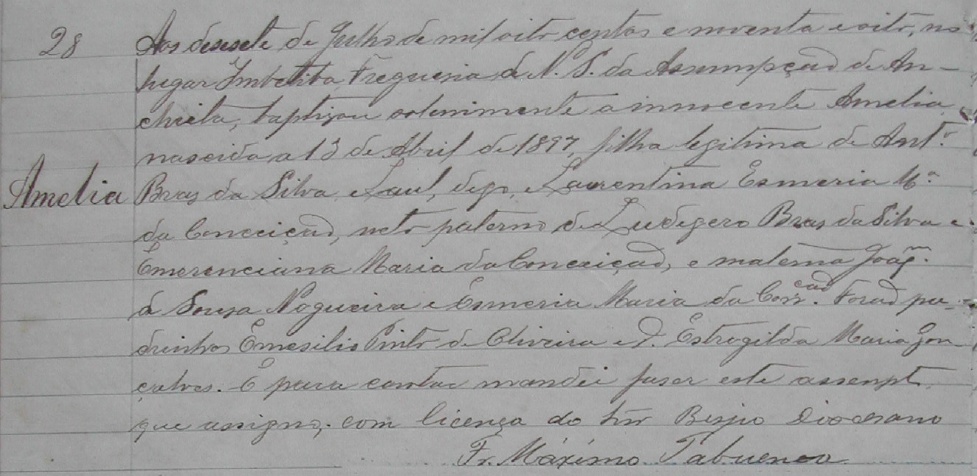 28 Aos desesete de Julho de mil oito centos e noventa e oito, no
lugar Imbetiba Freguesia de N. S. da Assumpçaõ de An-
chieta, baptizou solenimente a innocente Amelia,
nascida a 13 de Abril de 1897, filha legitima de Antº.
Amelia Bras da Silva e Laul, digo, e Laurentina Esmeria Mª
da Conceiçaõ, neto paterno de Ludegero Bras da Silva e
Emerenciana Maria da Conceiçaõ, e materna Joaqm.
de Sousa Nogueira e Esmeria Maria da Concam. Foraõ pa-
drinhos Emesilio Pinto de Oliveira e D. Estrogilda Maria Gon-
çalves. E para constar mandei faser este assempt
que assigno, com licença do Snr Bispo Diocesano
Fr. Máximo Tabuenca